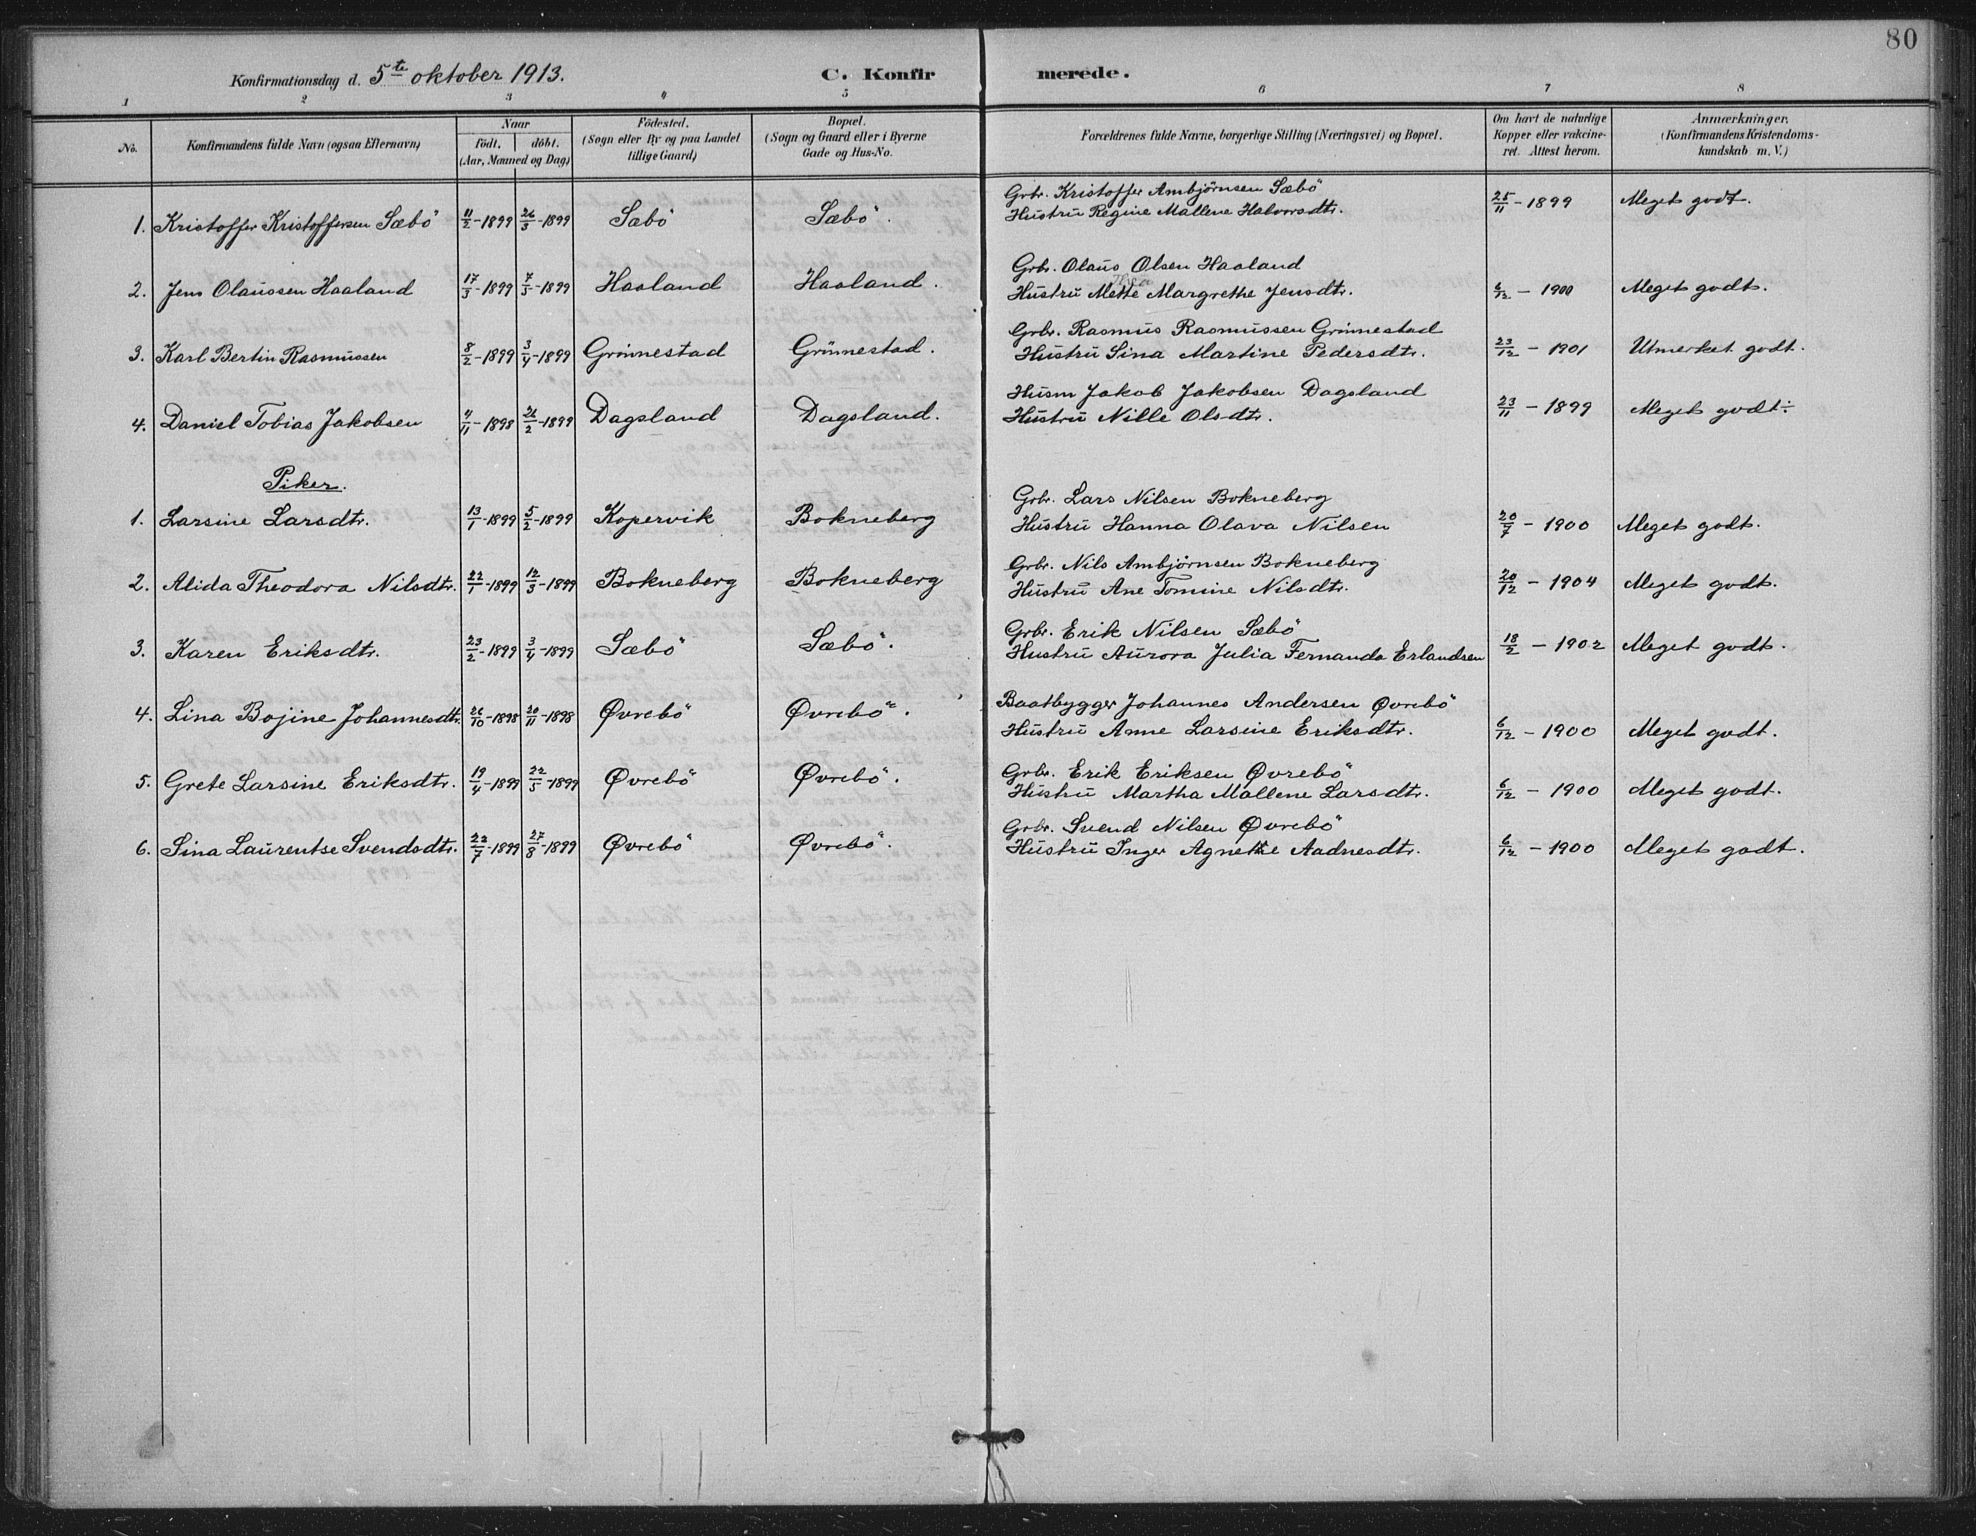 80
Konfirmationsdag d. 5te oktober 1913. C. Konfirmerede.
1 2 3 4 5 6 7 8
No. Konfirmandens fulde Navn (ogsaa Efternavn) Naar födt. döbt. (Aar, Maaned og Dag) Födested. (Sogn eller By og paa Landet tillige Gaard) Bopæl. (Sogn og Gaard eller i Byerne Gade og Hus-No. Forældrenes fulde Navne, borgerlige Stilling (Næringsvei) og Bopæl. Om havt de naturlige Kopper eller vakcineret. Attest herom. Anmærkninger. (Konfirmandens Kristendomskundskab m. V.)
Grbr. Kristoffer Ambjörnsen Sæbö
1. Kristoffer Kristoffersen Sæbö 11/2-1899 26/3-1899 Sæbö Sæbö. Hustru Regine Mallene Halvorsdtr. 25/11-1899 Meget godt.
Grbr. Olaus Olsen Haaland
2. Jens Olaussen Haaland 17/3-1899 7/5-1899 Haaland Haaland. Hustru Mette Margrethe Jensdtr. 6/12-1900 Meget godt.
Grbr. Rasmus Rasmussen Grönnestad
3. Karl Bertin Rasmussen 8/2-1899 3/4-1899 Grönnestad Grönnestad. Hustru Sina Martine Pedersdtr. 23/12-1901 Utmerket godt.
Husm Jakob Jakobsen Dagsland
4. Daniel Tobias Jakobsen 4/11-1898 26/2-1899 Dagsland Dagsland. Hustru Nille Olsdtr. 23/11-1899 Meget godt ÷
Piker.
Grbr. Lars Nilsen Bokneberg
1. Larsine Larsdtr. 13/1-1899 5/2-1899 Kopervik Bokneberg Hustru Hanna Olava Nilsen 20/7-1900 Meget godt.
Grbr. Nils Ambjörnsen Bokneberg
2. Alida Theodora Nilsdtr. 22/1-1899 12/3-1899 Bokneberg Bokneberg Hustru Ane Tomine Nilsdtr. 20/12-1904 Meget godt.
Grbr. Erik Nilsen Sæbö
3. Karen Eriksdtr. 23/2-1899 3/4-1899 Sæbö Sæbö. Hustru Aurora Julia Fernanda Erlandsen 18/2-1902 Meget godt.
Baatbygger Johannes Andersen Øvrebö
4. Lina Bojine Johannesdtr. 26/10-1898 20/11-1898 Øvrebö Øvrebö. Hustru Anne Larsine Eriksdtr. 6/12-1900 Meget godt.
Grbr. Erik Eriksen Øvrebö
5. Grete Larsine Eriksdtr. 19/4-1899 22/5-1899 Øvrebö Øvrebö. Hustru Martha Mallene Larsdtr. 6/12-1900 Meget godt.
Grbr. Svend Nilsen Øvrebö
6. Sina Laurentse Svendsdtr. 22/7-1899 27/8-1899 Øvrebö Øvrebö. Hustru Inger Agnethe Aadnesdtr. 6/12-1900 Meget godt.